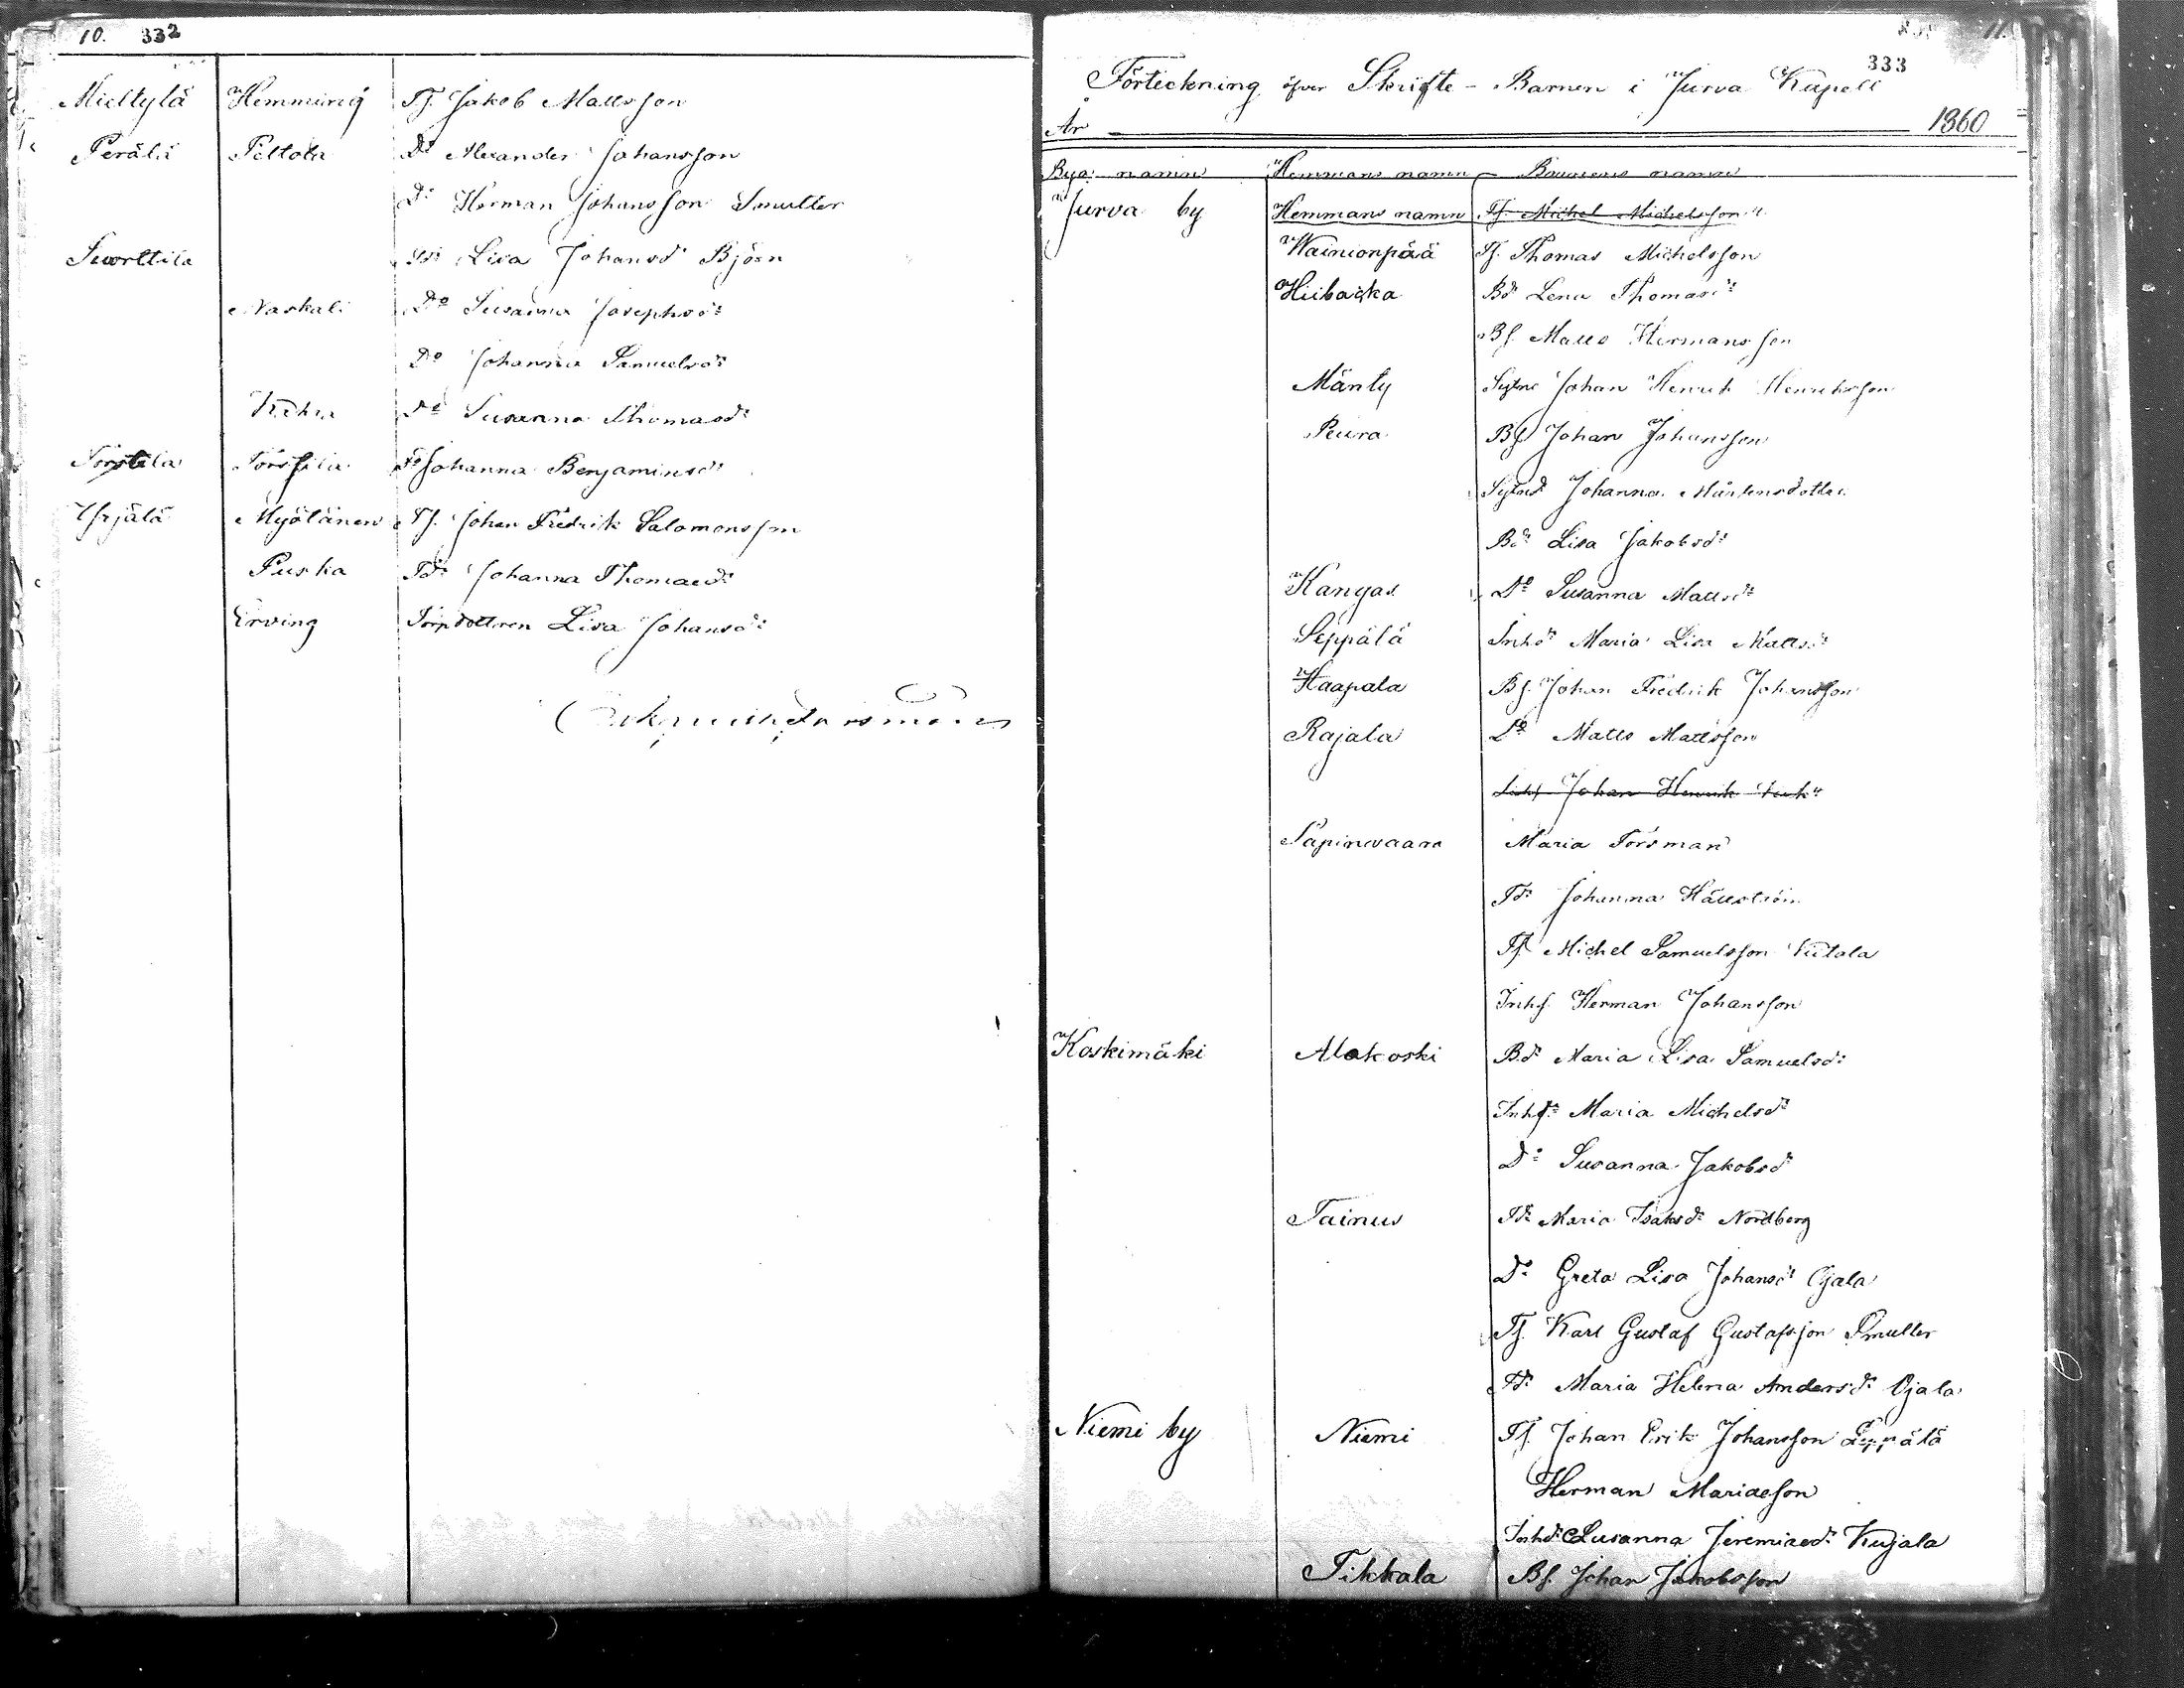 10. 332
Mieltylä Hemming Tf. Jakob Mattsson
Perälä Peltola Do Alexander Johansson
Do Herman Johansson Smulter
Suorttila Td: Lisa Johansd: Björn
Naskali Do Susanna Josephsd:
Do Johanna Samuelsd:
Do Susanna Thomasd:
Törstila Johanna Benjaminsd:
Yrjälä Myölänen Tf. Johan Fredrik Salomonsson
Puska Td: Johanna Thomaed:
Erving Torpdottren Lisa Johansd:
11.
333
Förteckning öfver Skrifte-Barnen i Jurva Kapell
År 1860
Bya namn Hemmans namn Barnens namn
Jurva by Hemmans namn Tf. Michel Michelsson
Wainionpää Tf. Thomas Michelsson
Hiibacka Bd: Lena Thomasd:
Bf. Matts Hermansson
Mänty Sytn: Johan Henrik Henriksson
Peura Bf. Johan Johansson
Sytnd Johanna Mårtensdotter
Bd: Lisa Jakobsd:
Kangas Do Susanna Mattsd:
Seppälä Inhd: Maria Lisa Mattsd:
Haapala Bf. Johan Fredrik Johansson
Rajala Do Matts Mattsson
Johan Henrik
Sapinvaara Maria Forsman
Td: Johanna Hällström
Tf. Michel Samuelsson Kiitala
Inhf. Herman Johansson
Koskimäki Alakoski Bd: Maria Lisa Samuelsd:
Inhd: Maria Michelsd:
Do Susanna Jakobsd:
Tainus Td: Maria Isaksd: Nordberg
Do Greta Lisa Johansd: Ojala
Tf. Karl Gustaf Gustafsson Smulter
Td: Maria Helena Andersd: Ojala
Niemi by Niemi Tf. Johan Erik Johansson Leppälä
Herman Mariaeson
Inhd: Susanna Jeremiaed: Kujala
Tikkala Bf. Johan Jakobsson